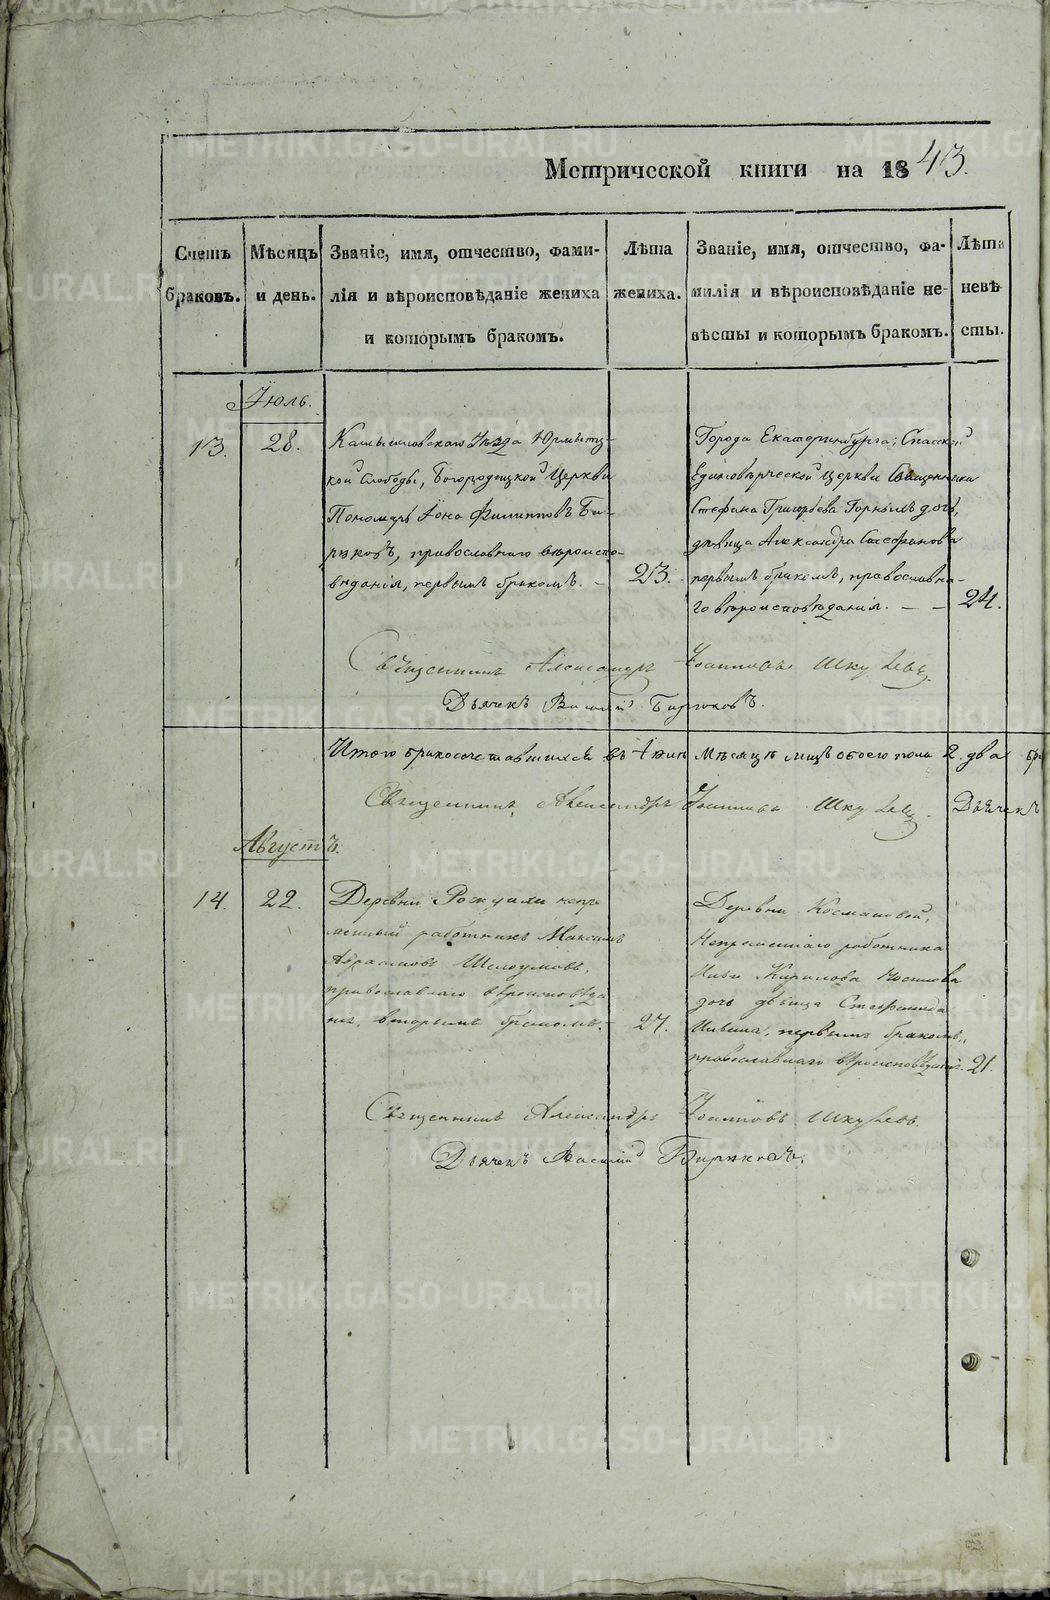 Метрической книги на 1843.
Счетъ браковъ.
Мѣсяцъ и день.
Званіе, имя, отчество, фами-
лія и вѣроисповѣданіе жениха
и которымъ бракомъ.
Лѣта жениха.
Званіе, имя, отчество, фа-
милія и вѣроисповѣданіе не-
вѣсты и которымъ бракомъ.
Лѣта невѣ
сты.
Іюль.
13.
28.
Камышловскаго Уѣзда Юрмытц-
кой Слободы, Богородицкой Церкви
Пономарь Іона Филипповъ Би-
рюковъ, православнаго вѣроиспо-
вѣданія, первымъ бракомъ. –
23.
Города Екатеринбурга, Спасской
Единовѣрческой Церкви Священника
Стефана Григорьева Горныхъ дочь,
дѣвица Александра Стефанова
первымъ бракомъ, православна-
го вѣроисповѣданія. – –
24.
Священникъ Александръ Іоанновъ
Дьячекъ Василій Бирюковъ.
Итого бракосочетавшихся въ Іюлѣ Мѣсяцѣ лицъ обоего пола 2. два
Священникъ Александръ Іоанновъ Дьячекъ
Августъ.
14.
22.
Деревни непре
мѣнный работникъ Максимъ
Абрамовъ Шелоумовъ,
православнаго вѣроисповѣда
нія, вторымъ бракомъ. –
27.
Деревни Космаковой,
Непремѣннаго работника
Кирилова
дочь дѣвица Стефанида
первымъ бракомъ,
православнаго вѣроисповѣданія.
21.
Священникъ Александръ Іоанновъ
Дьячекъ Василій Бирюковъ.
METRIKI.GASO-URAL.RU